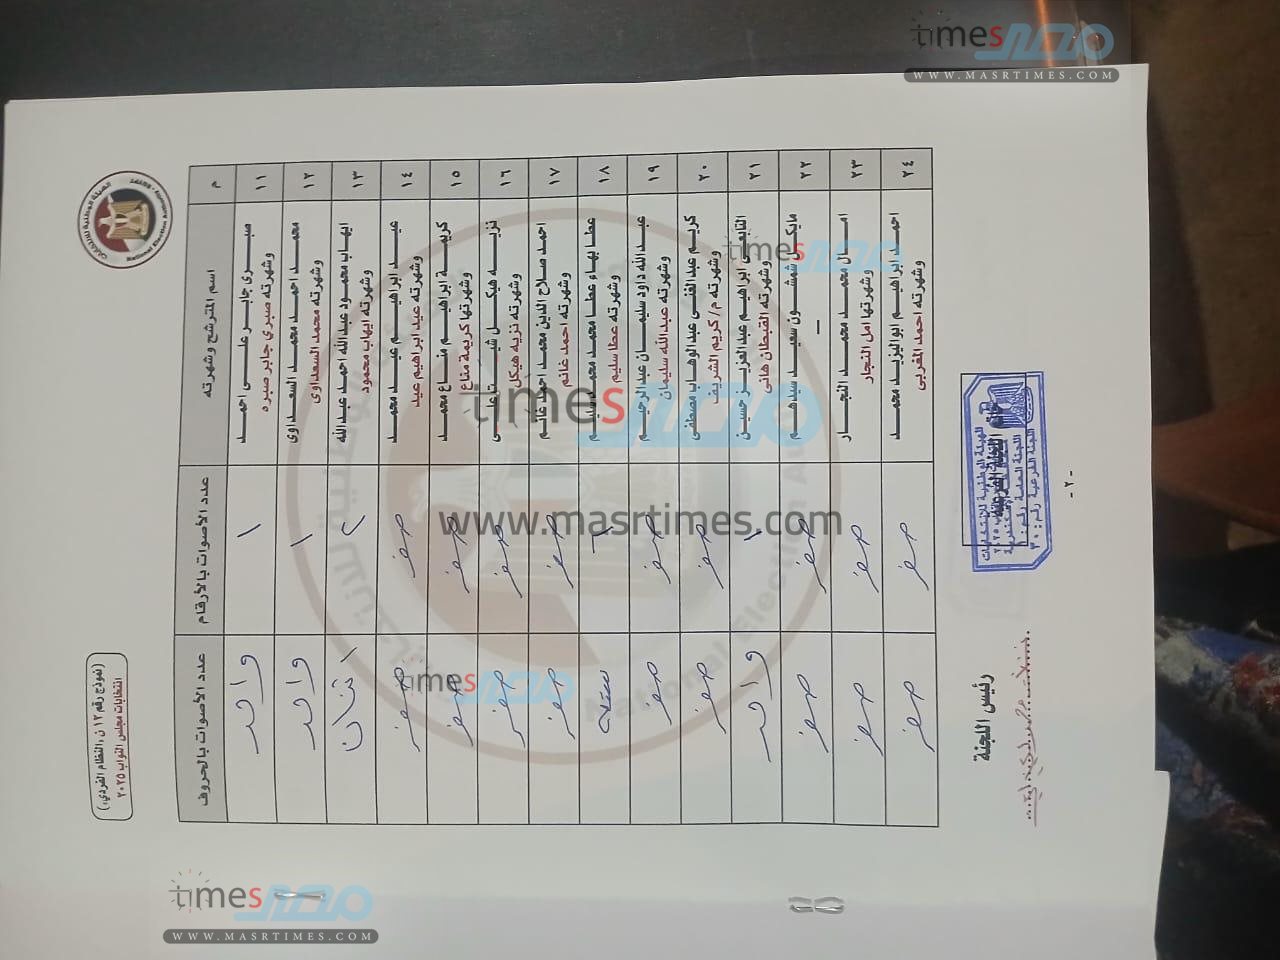 (نموذج رقم ١٢ ن «النظام الفردي»)
انتخابات مجلس النواب ٢٠٢٥
الهيئة الوطنية للانتخابات
National Election Authority
م اسم المترشح وشهرته عدد الأصوات بالأرقام عدد الأصوات بالحروف
١١ صبرى جابر على احمد ١ واحد
وشهرته صبري جابر صبره
١٢ محمد احمد محمد السعداوى ١ واحد
وشهرته محمد السعداوى
١٣ ايهاب محمود عبدالله احمد عبدالله ٢ اثنان
وشهرته ايهاب محمود
١٤ عيد ابراهيم عيد محمد صفر صفر
وشهرته عيد ابراهيم عيد
١٥ كريمة ابراهيم مناع محمد صفر صفر
وشهرتها كريمة مناع
١٦ نزيه هيكل شبت على صفر صفر
وشهرته نزيه هيكل
١٧ احمد صلاح الدين محمد احمد غانم صفر صفر
وشهرته احمد غانم
١٨ عطا بهاء عطا محمد محمد سليم ٦ ستة
وشهرته عطا سليم
١٩ عبدالله داود سليمان عبدالرحيم صفر صفر
وشهرته عبدالله سليمان
٢٠ كريم عبدالغنى عبدالوهاب مصطفى صفر صفر
وشهرته م/ كريم الشريف
٢١ التابعى ابراهيم عبدالعزيز حسين ١ واحد
وشهرته القبطان هانى
٢٢ مايكل شمشون سعيد سيدهم صفر صفر
—
٢٣ امال محمد محمد النجار صفر صفر
وشهرتها امل النجار
٢٤ احمد ابراهيم ابواليزيد محمد صفر صفر
وشهرته احمد المغربى
رئيس اللجنة
الهيئة الوطنية للانتخابات
خاتم اللجنة الفرعية
اللجنة الفرعية رقم: ٣٠
- ٢ -
times مصر
WWW.MASRTIMES.COM
times مصر
times مصر
www.masrtimes.com
times مصر
times مصر
WWW.MASRTIMES.COM